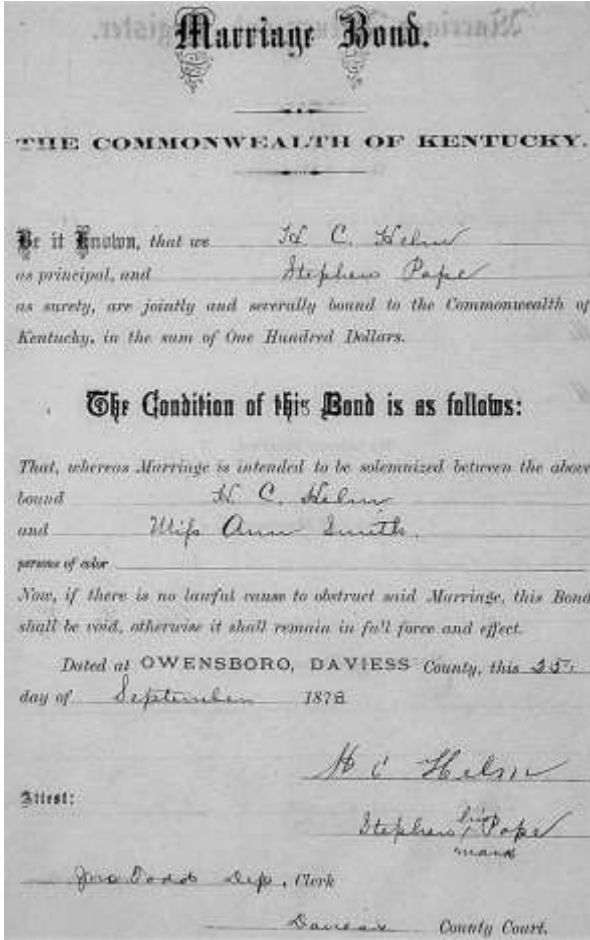 Marriage Bond.
THE COMMONWEALTH OF KENTUCKY.
Be it Known, that we H C. Helm
as principal, and Stephen Pope
as surety, are jointly and severally bound to the Commonwealth of
Kentucky, in the sum of One Hundred Dollars.
The Condition of this Bond is as follows:
That, whereas Marriage is intended to be solemnized between the above
bound H C. Helm
and Miss Ann Smith.
persons of color
Now, if there is no lawful cause to obstruct said Marriage, this Bond
shall be void, otherwise it shall remain in full force and effect.
Dated at OWENSBORO, DAVIESS County, this 25
day of September 1878
H C Helm
Attest:
his
Stephen x Pope
mark
Jno Todd Dep, Clerk
Daviess County Court.